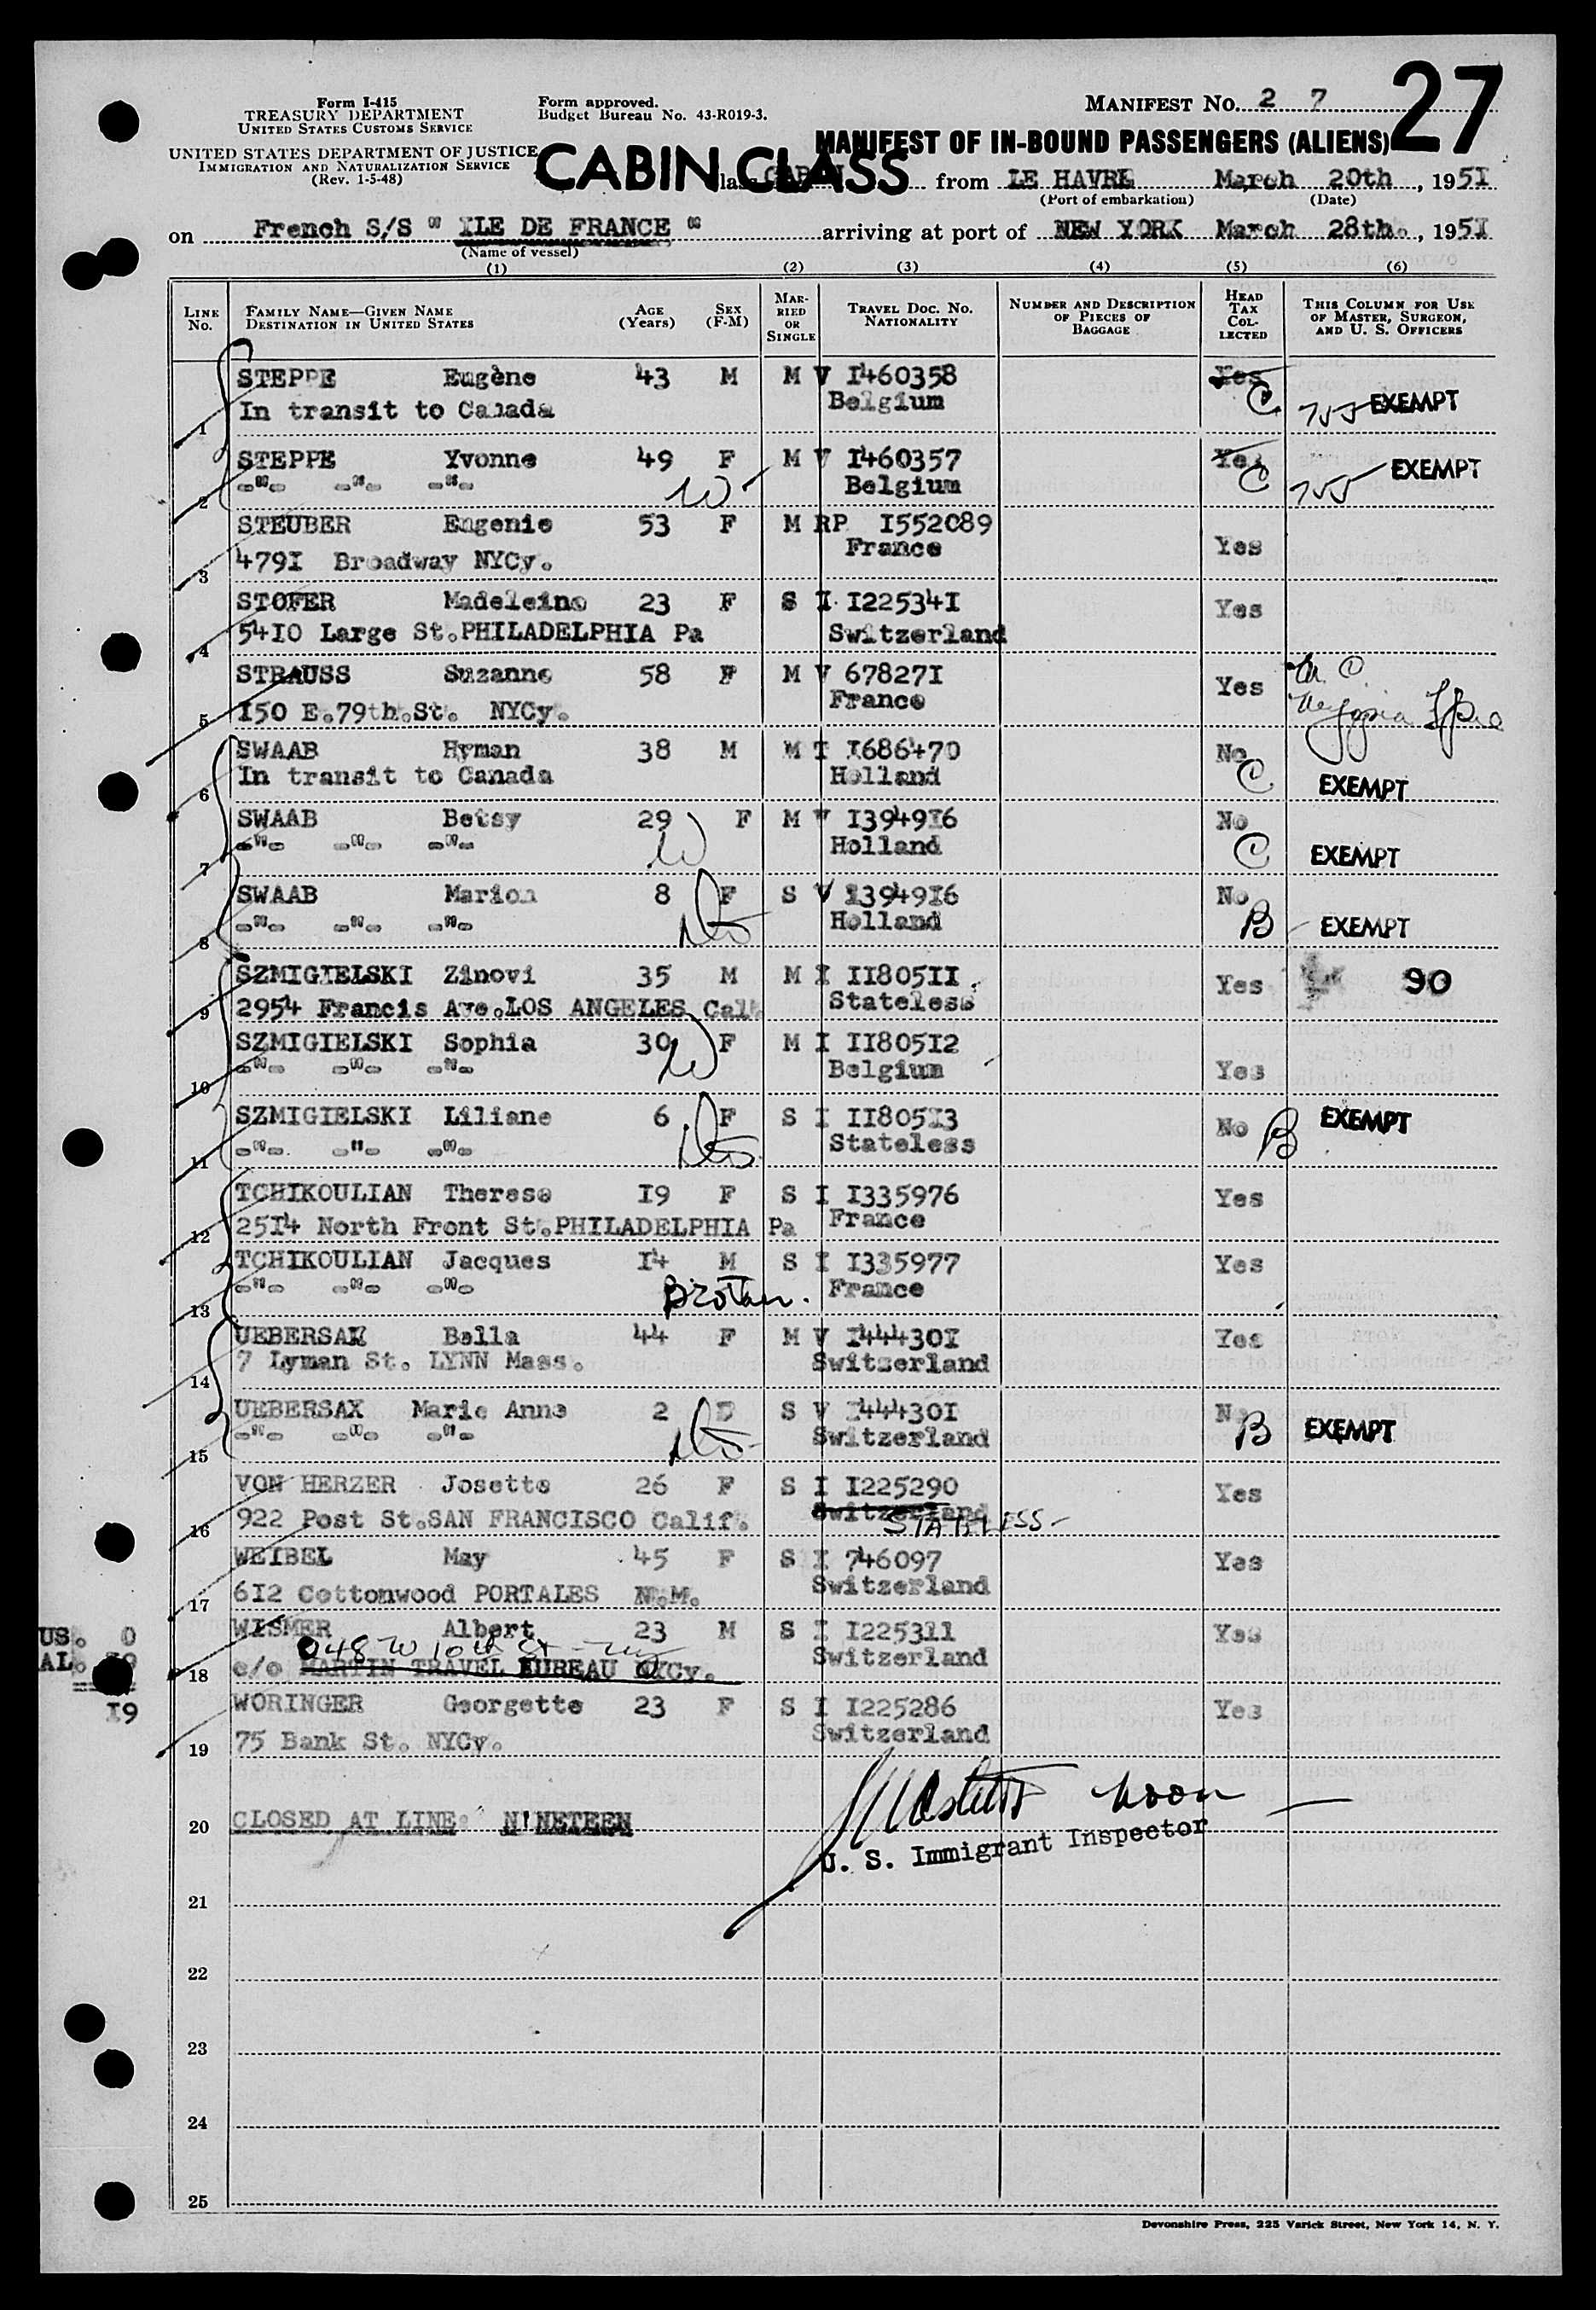 27
Form I-415
TREASURY DEPARTMENT
UNITED STATES CUSTOMS SERVICE
UNITED STATES DEPARTMENT OF JUSTICE
IMMIGRATION AND NATURALIZATION SERVICE
(Rev. 1-5-48)
Form approved.
Budget Bureau No. 43-R019-3.
MANIFEST NO. 2 7
MANIFEST OF IN-BOUND PASSENGERS (ALIENS)
CABIN CLASS
from LE HAVRE March 20th, 1951
(Port of embarkation) (Date)
on French S/S " ILE DE FRANCE " arriving at port of NEW YORK March 28th., 1951
(Name of vessel)
(1) (2) (3) (4) (5) (6)
LINE No. FAMILY NAME—GIVEN NAME DESTINATION IN UNITED STATES AGE (Years) SEX (F-M) MARRIED OR SINGLE TRAVEL DOC. NO. NATIONALITY NUMBER AND DESCRIPTION OF PIECES OF BAGGAGE HEAD TAX COLLECTED THIS COLUMN FOR USE OF MASTER, SURGEON, AND U. S. OFFICERS
STEPPE Eugène 43 M M V I460358 Yes
1 In transit to Canada Belgium C EXEMPT
STEPPE Yvonne 49 F M V I460357 Yes
2 -"- -"- -"- W Belgium C EXEMPT
STEUBER Eugenie 53 F M RP I552089
3 479I Broadway NYCy. France Yes
STOFER Madeleine 23 F S I I22534I Yes
4 54I0 Large St.PHILADELPHIA Pa Switzerland
STRAUSS Suzanne 58 F M V 67827I Yes
5 I50 E.79th.St. NYCy. France
SWAAB Hyman 38 M M I I686470 No
6 In transit to Canada Holland C EXEMPT
SWAAB Betsy 29 F M V I3949I6 No
7 -"- -"- -"- W Holland C EXEMPT
SWAAB Marion 8 F S V I3949I6 No
8 -"- -"- -"- Holland B EXEMPT
SZMIGIELSKI Zinovi 35 M M I II805II Yes 90
9 2954 Francis Ave.LOS ANGELES Cal Stateless
SZMIGIELSKI Sophia 30 F M I II805I2
10 -"- -"- -"- W Belgium Yes
SZMIGIELSKI Liliane 6 F S I II805I3 No B EXEMPT
11 -"- -"- -"- Stateless
TCHIKOULIAN Therese I9 F S I I335976 Yes
12 25I4 North Front St.PHILADELPHIA Pa France
TCHIKOULIAN Jacques I4 M S I I335977 Yes
13 -"- -"- -"- France
UEBERSAX Bella 44 F M V I44430I Yes
14 7 Lyman St. LYNN Mass. Switzerland
UEBERSAX Marie Anne 2 F S V I44430I No B EXEMPT
15 -"- -"- -"- Switzerland
VON HERZER Josette 26 F S I I225290 Yes
16 922 Post St.SAN FRANCISCO Calif. Switzerland STATELESS-
WEIBEL May 45 F S I 746097 Yes
17 6I2 Cottonwood PORTALES N.M. Switzerland
US. 0 WISMER Albert 23 M S I I2253II Yes
AL. I9 18 c/o MARTIN TRAVEL BUREAU NYCy. Switzerland
I9 WORINGER Georgette 23 F S I I225286 Yes
19 75 Bank St. NYCy. Switzerland
20 CLOSED AT LINE: NINETEEN
U. S. Immigrant Inspector
21
22
23
24
25
Devonshire Press, 225 Varick Street, New York 14, N. Y.